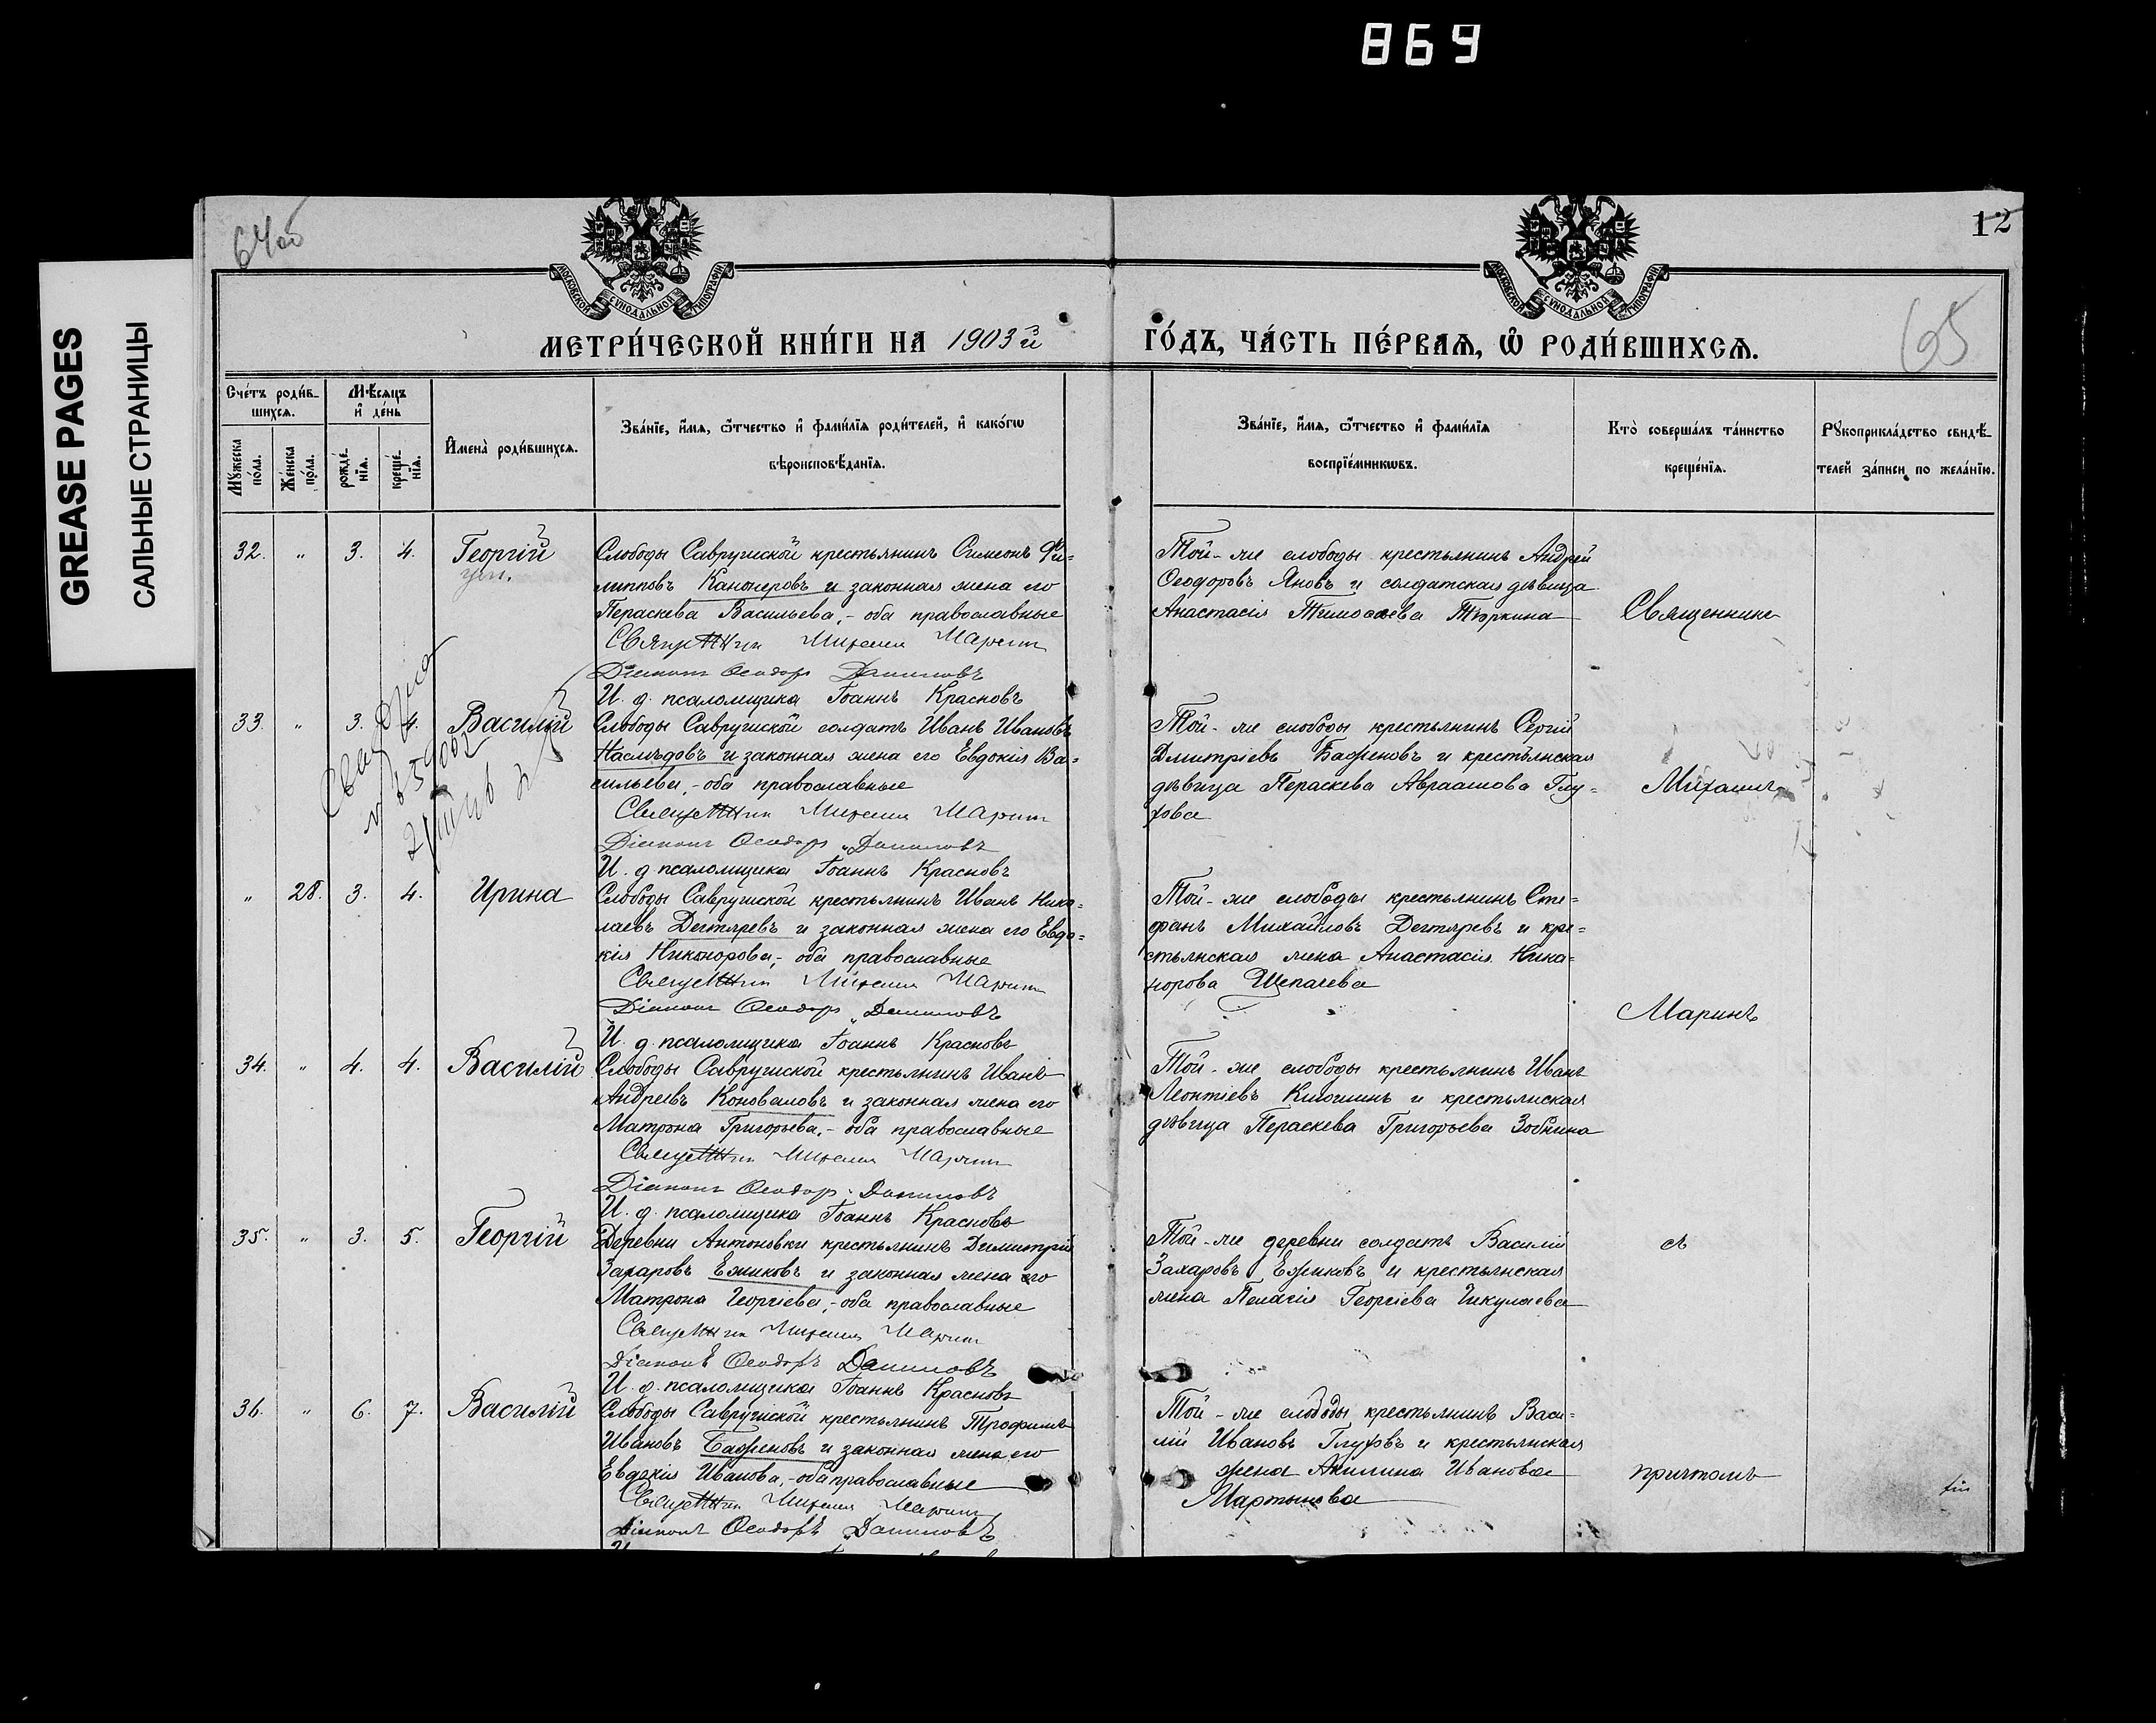 869
GREASE PAGES
САЛЬНЫЕ СТРАНИЦЫ
64об
12
65
МОСКОВСКОЙ СѴНОДАЛЬНОЙ ТИПОГРАФІИ
МОСКОВСКОЙ СѴНОДАЛЬНОЙ ТИПОГРАФІИ
МЕТРИ́ЧЕСКОЙ КНИ́ГИ НА 1903й ГО́ДЪ, ЧА́СТЬ ПЕ́РВАѦ, Ѡ РОДИ́ВШИХСѦ.
Сче́тъ роди́в-
шихсѧ.
Мѣсѧцъ
и де́нь
Мꙋ́жеска
по́ла.
Же́нска
по́ла.
рожде́-
нїѧ.
креще́-
нїѧ.
Имена̀ роди́вшихсѧ.
Зва́нїе, и́мѧ, ѻ́тчество и фами́лїѧ роди́телей, и како́гѡ
вѣроисповѣ́данїѧ.
Зва́нїе, и́мѧ, ѻ́тчество и фами́лїѧ
воспрїе́мникѡвъ.
Кто̀ соверша́лъ та́инство
креще́нїѧ.
Рꙋкоприкла́дство свидѣ́-
телей за́писи по жела́нїю.
32. " 3. 4. Георгій
ум.
Слободы Саврушской крестьянинъ Симеонъ Фи=
липповъ Канонеровъ и законная жена его
Параскева Васильева, - оба православные
Священникъ Михаилъ Маринъ
Діаконъ Ѳеодоръ Даниловъ
И. д. псаломщика Іоаннъ Красновъ
Той-же слободы крестьянинъ Андрей
Ѳеодоровъ Яновъ и солдатская дѣвица
Анастасія Тимоѳеева Тюркина
Священникъ
33. " 3. 4. Василій
Слободы Саврушской солдатъ Иванъ Ивановъ
Наслѣдовъ и законная жена его Евдокія Ва=
сильева, - оба православные
Священникъ Михаилъ Маринъ
Діаконъ Ѳеодоръ Даниловъ
И. д. псаломщика Іоаннъ Красновъ
Той-же слободы крестьянинъ Сергій
Дмитріевъ Баженовъ и крестьянская
дѣвица Параскева Авраамова Глу=
хова
Михаилъ
" 28. 3. 4. Ирина
Слободы Саврушской крестьянинъ Иванъ Нико=
лаевъ Дегтяревъ и законная жена его Евдо=
кія Никонорова, - оба православные
Священникъ Михаилъ Маринъ
Діаконъ Ѳеодоръ Даниловъ
И. д. псаломщика Іоаннъ Красновъ
Той-же слободы крестьянинъ Сте=
фанъ Михайловъ Дегтяревъ и кре=
стьянская жена Анастасія Ника=
норова Щепалева
Маринъ
34. " 4. 4. Василій
Слободы Саврушской крестьянинъ Иванъ
Андреевъ Коноваловъ и законная жена его
Матрона Григорьева, - оба православные
Священникъ Михаилъ Маринъ
Діаконъ Ѳеодоръ Даниловъ
И. д. псаломщика Іоаннъ Красновъ
Той-же слободы крестьянинъ Иванъ
Леонтіевъ Кшошинъ и крестьянская
дѣвица Параскева Григорьева Зобнина
35. " 3. 5. Георгій
Деревни Антоновки крестьянинъ Димитрій
Захаровъ Ежиковъ и законная жена его
Матрона Георгіева, - оба православные
Священникъ Михаилъ Маринъ
Діаконъ Ѳеодоръ Даниловъ
И. д. псаломщика Іоаннъ Красновъ
Той-же деревни солдатъ Василій
Захаровъ Ежиковъ и крестьянская
жена Пелагія Георгіева Чикулаева
съ
36. " 6. 7. Василій
Слободы Саврушской крестьянинъ Трофимъ
Ивановъ Баженовъ и законная жена его
Евдокія Иванова, - оба православные
Священникъ Михаилъ Маринъ
Діаконъ Ѳеодоръ Даниловъ
Той-же слободы крестьянинъ Васи=
лій Ивановъ Глуховъ и крестьянская
жена Акилина Иванова
Мартынова
причтомъ